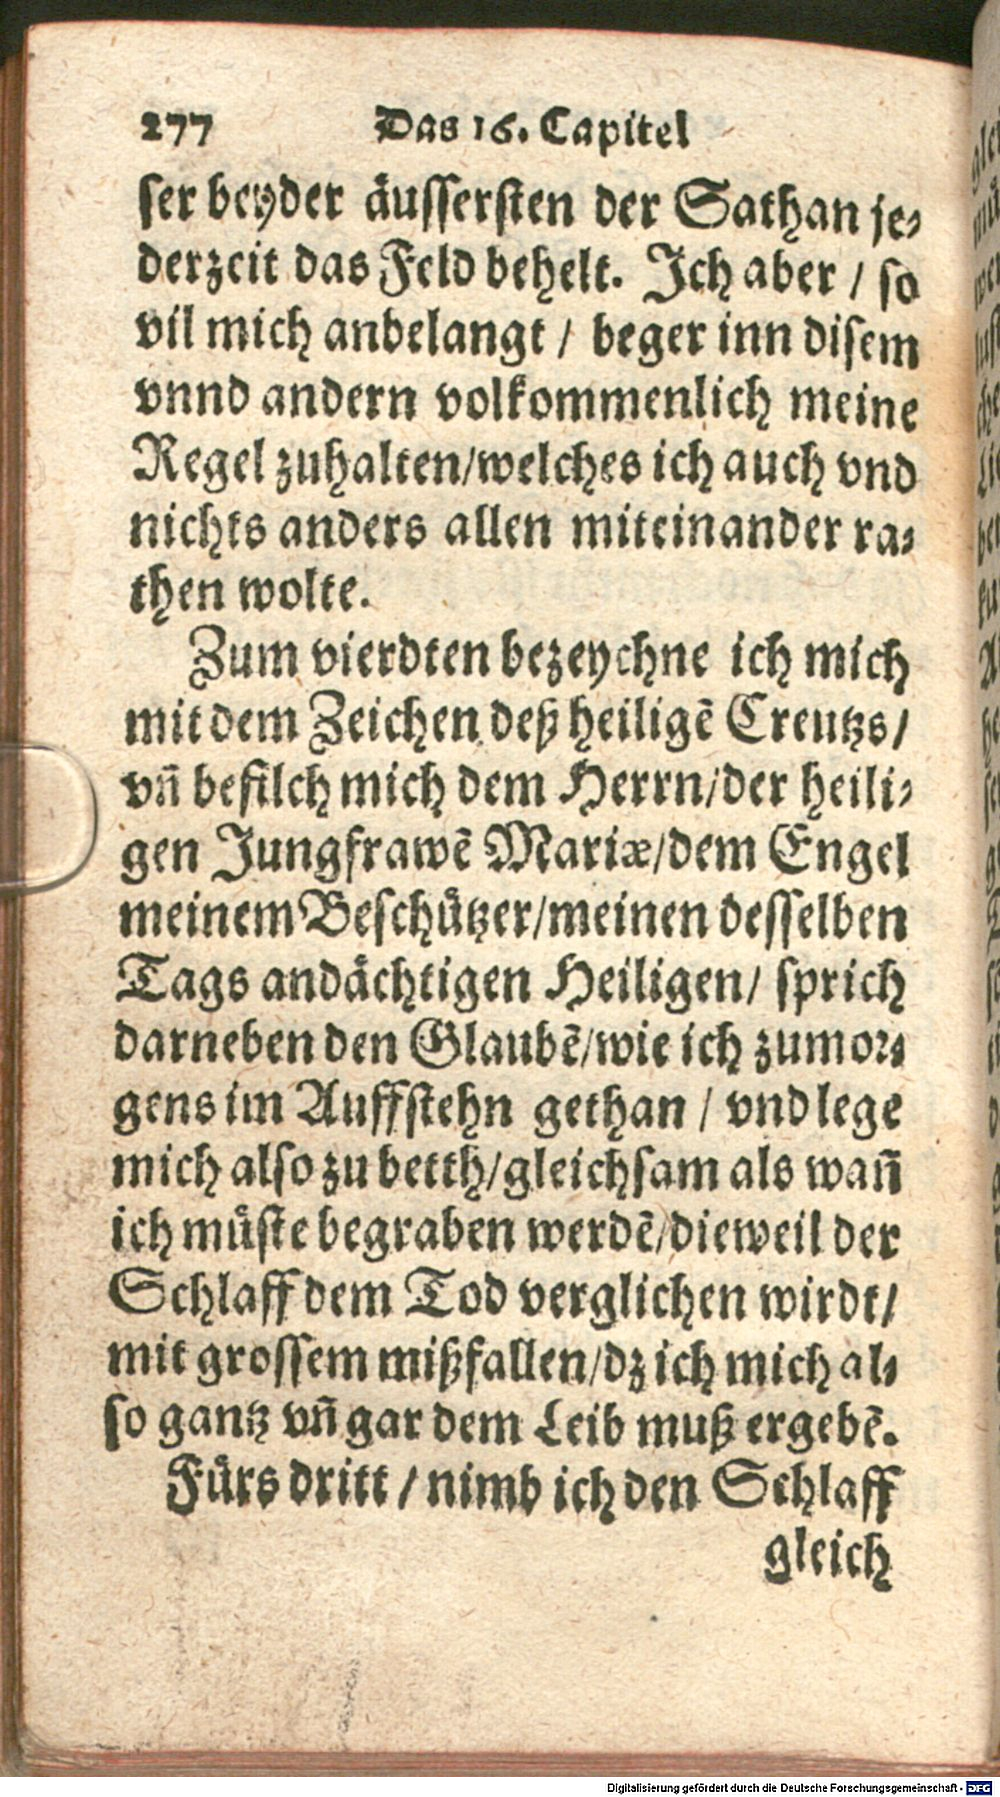 277 Das 16. Capitel
ser beyder äussersten der Sathan je⸗
derzeit das Feld behelt. Ich aber / so
vil mich anbelangt / beger inn disem
vnnd andern volkommenlich meine
Regel zuhalten/welches ich auch vnd
nichts anders allen miteinander ra⸗
then wolte.
Zum vierdten bezeychne ich mich
mit dem Zeichen deß heiligē Creutzs/
vn̄ befilch mich dem Herrn/der heili⸗
gen Jungfrawē Mariæ/dem Engel
meinem Beschützer/meinen desselben
Tags andächtigen Heiligen/ sprich
darneben den Glaubē/wie ich zumor⸗
gens im Auffstehn gethan / vnd lege
mich also zu betth/gleichsam als wan̄
ich müste begraben werdē/dieweil der
Schlaff dem Tod verglichen wirdt/
mit grossem mißfallen/dz ich mich al⸗
so gantz vn̄ gar dem Leib muß ergebē.
Fürs dritt / nimb ich den Schlaff
gleich
Digitalisierung gefördert durch die Deutsche Forschungsgemeinschaft - DFG